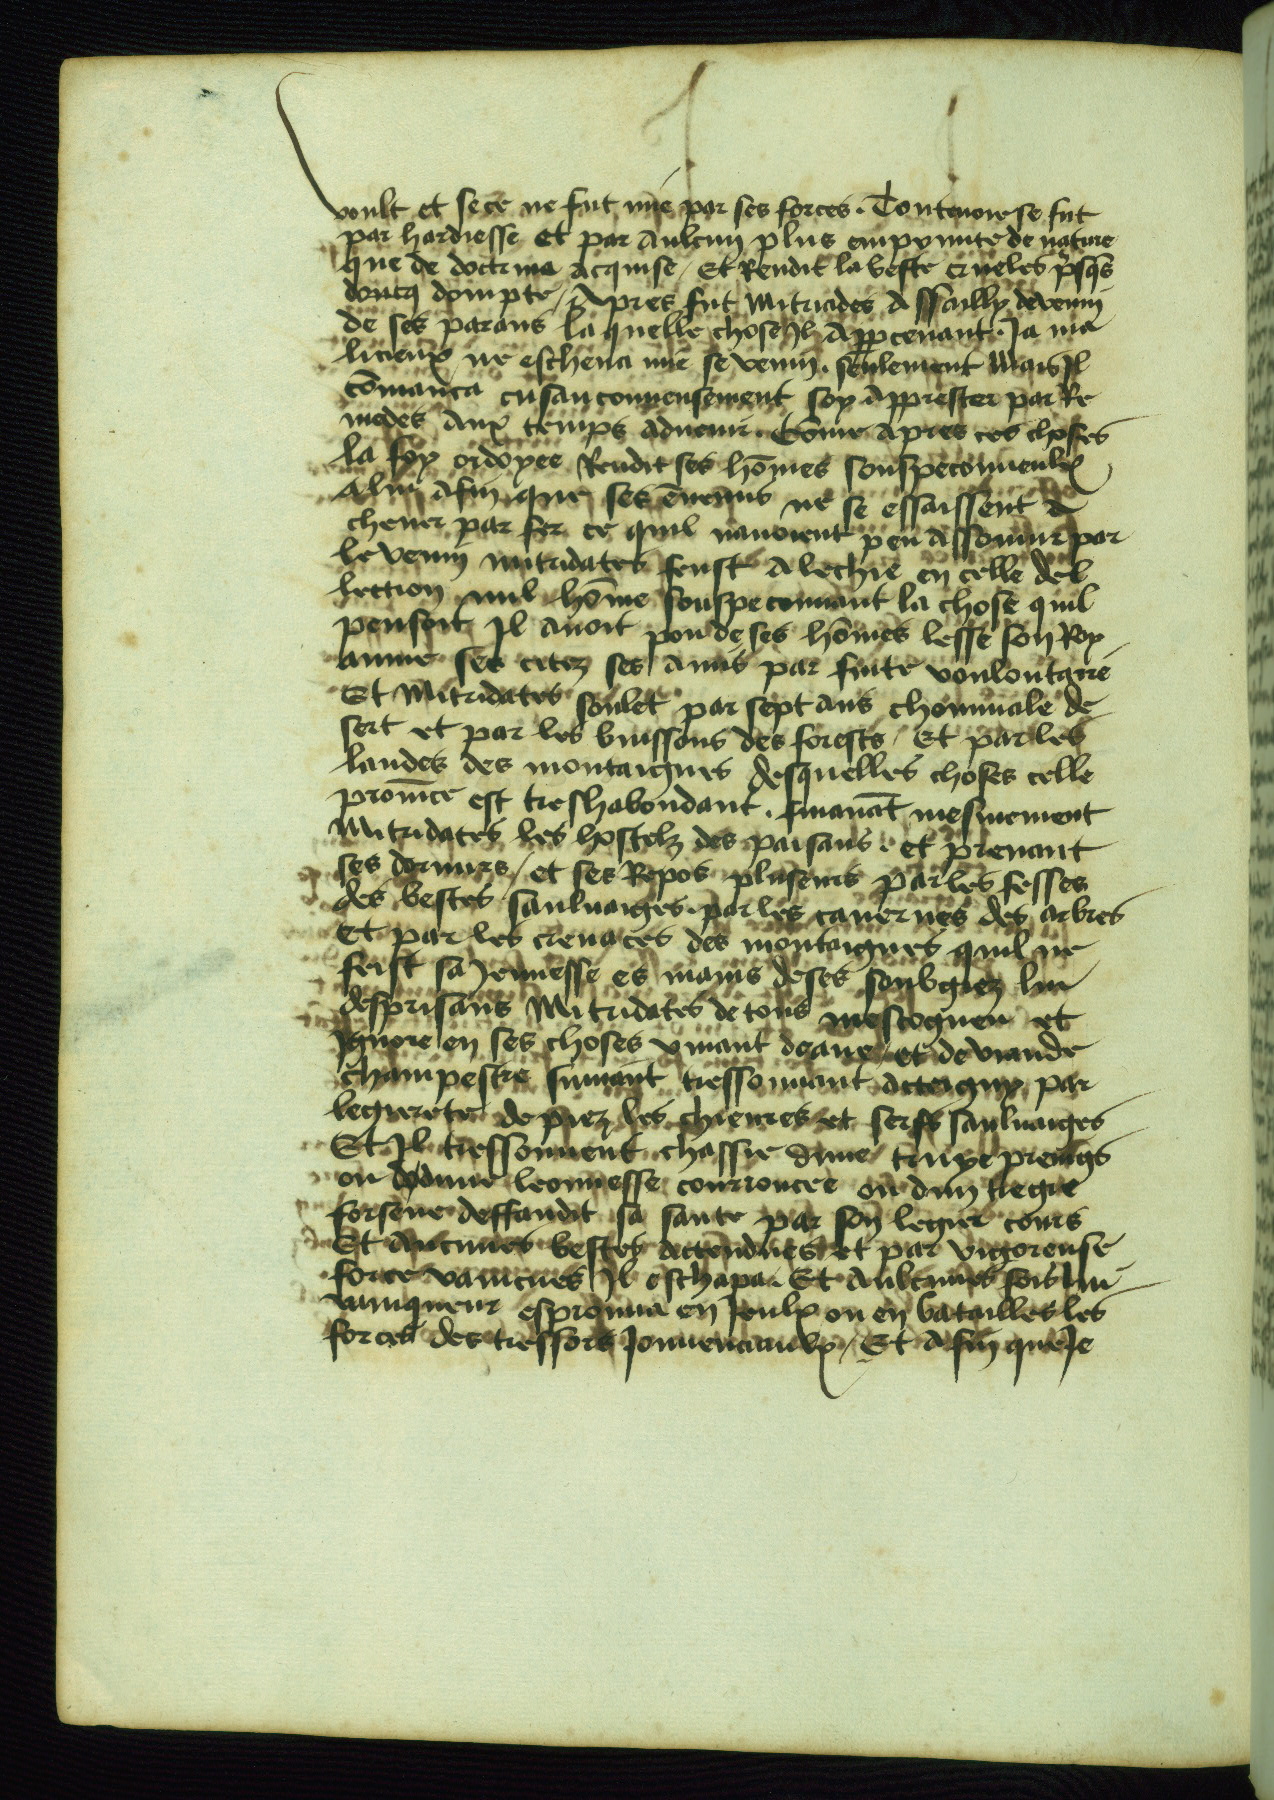 voult et se ce ne fut mie par ses forces. Toutenoie se fut
par hardiesse et par aulcun plus empruntē de nature
que de doctrina acquise / et Rendit la beste crueles p̄sq̄s
doucq dompte / Apres fut Mitriades Assailly devenin
de ses parans la quelle chose Il Appcenant. Ja ma
licieux ne escheua mie se venin. seulement Mais Il
cōmanca cusanconneusement soy Apprester par Re
medes aux temps aduenir. Cōme Apres ces choses
la foy ordoyee Rendit ses hōmes souspeconneulx
a lui Afin que ses ēnemis ne se essaissent a
cheuer par fer ce quil nauoient peu Assouuir par
le venin mitridates feust Alechie en celle del
lection nul hōme souspeconnant la chose quil
pensoit Il auoit pou de ses hōmes lesse son Roy
aume ses citez ses Amis par fuite voulontaire
Et Mitridates soulet par sept ans chemina le de
sert et par les buissons des forests / Et par les
landes des montaignes desquelles choses celle
prouīce est treshabondant. fuianāt mesmement
Mitridates les hostelz des paisans. et prenant
ses dormirs / et ses Repos pluseurs par les fesses
des bestes sauluaiges. par les cauernes des arbres
Et par les creuaces des montaignes quil ne
feist sa Jeunesse es mains de ses soubgiez lui
desprisans Mitridates de tous mescogneu et
Ignore en ses choses viuant deaue / et de viande
champestre suiuant tressouuant acteigny par
legierete de piez les chieures et serfs sauluaiges
Et Il tressouuent chassie dune truye preings
ou dune leonnesse courroucee ou dun tiegre
forsene deffandit sa sante par son legier cours
Et aucunes bestes actendues et par vigoreuse
force vaincues Il eschapa. Et aulcunes fois lui
vainqueur esprouua en Jeulx ou en batailles les
forces des tressors Jouuenciaulx / Et Afin que Je